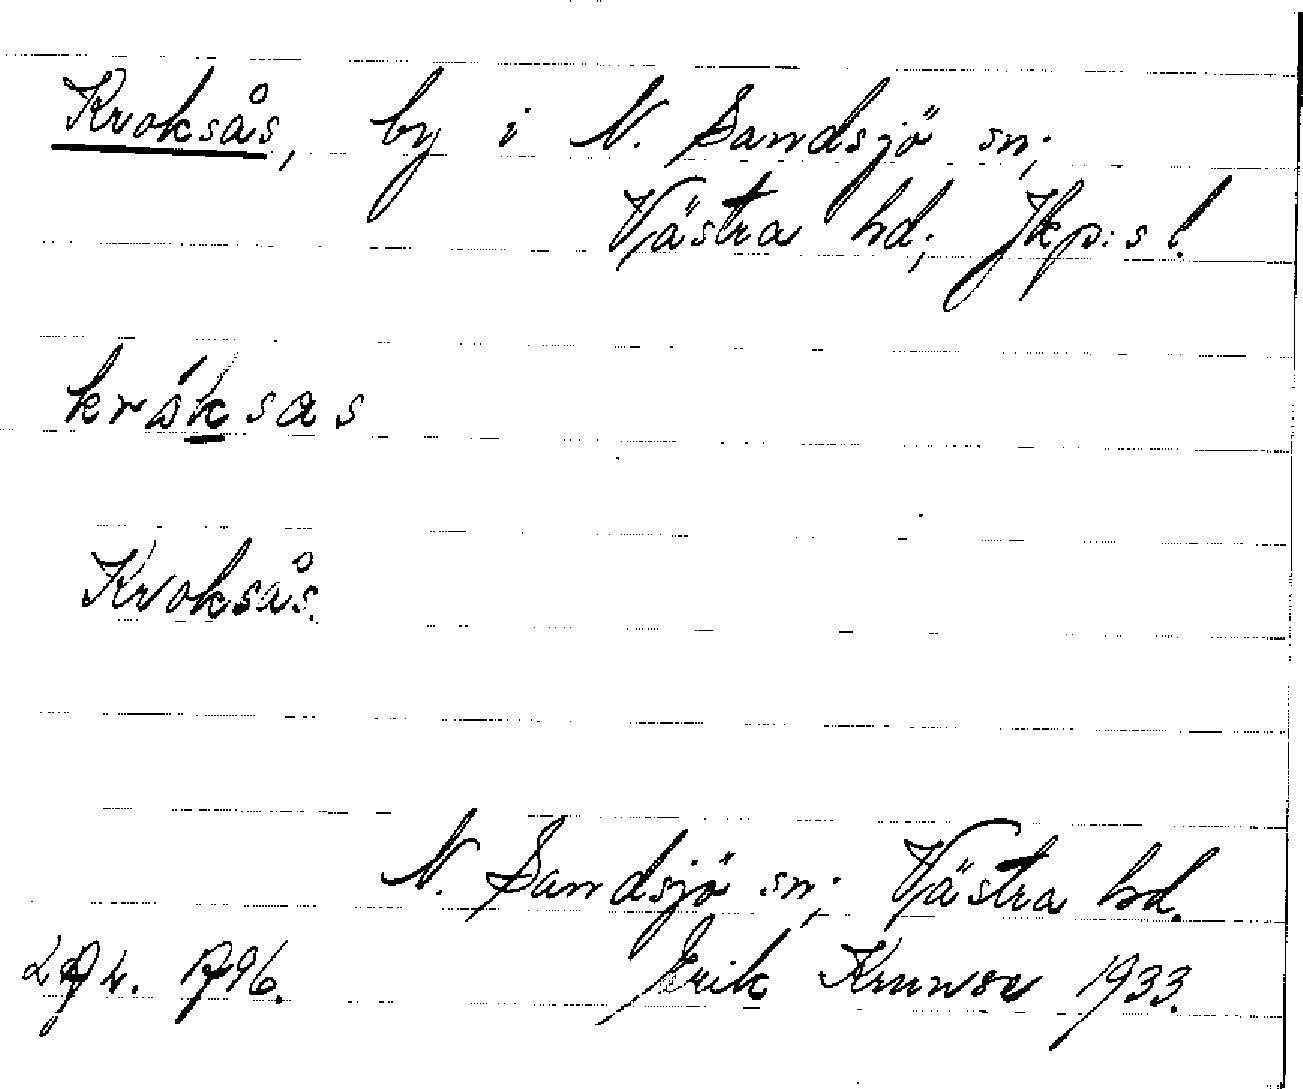 Kroksås, by i N. Sandsjö sn;
Västra hd; Jkp:s l.
kråksas
Kroksås.
N. Sandsjö sn; Västra hd.
Erik 1933.